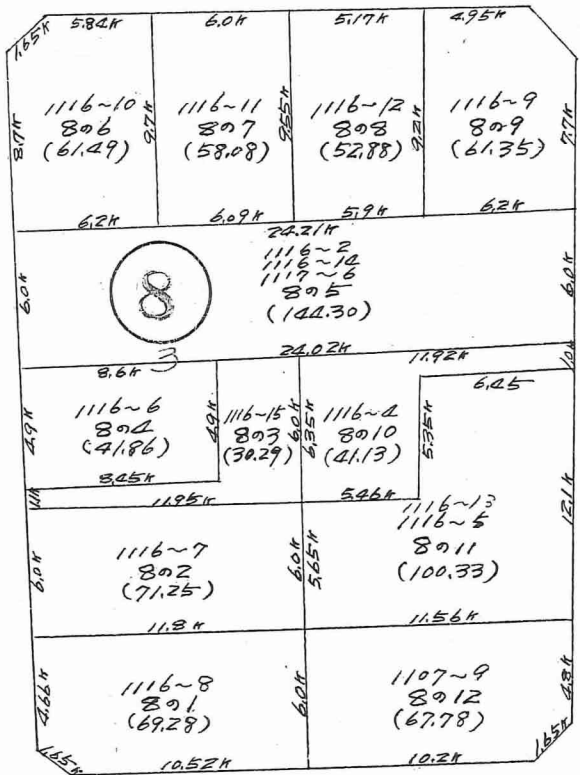 1.65K
5.84K
6.0K
5.17K
4.95K
8.7K
1116~10
8の6
(61.49)
9.7K
1116~11
8の7
(58.08)
9.55K
1116~12
8の8
(52.88)
9.2K
1116~9
8の9
(61.35)
7.7K
6.2K
6.09K
5.9K
6.2K
6.0K
8
3
24.21K
1116~2
1116~14
1117~6
8の5
(144.30)
6.0K
24.02K
8.6K
11.92K
1.0K
6.45
4.9K
1116~6
8の4
(41.86)
4.9K
1116~15
8の3
(30.29)
6.0K
6.35K
1116~4
8の10
(41.13)
5.35K
8.45K
11.95K
5.46K
12.1K
6.0K
1116~7
8の2
(71.25)
6.0K
5.65K
1116~13
1116~5
8の11
(100.33)
11.8K
11.56K
4.66K
1116~8
8の1
(69.28)
6.0K
1107~9
8の12
(67.78)
4.8K
1.65K
10.52K
10.2K
1.65K